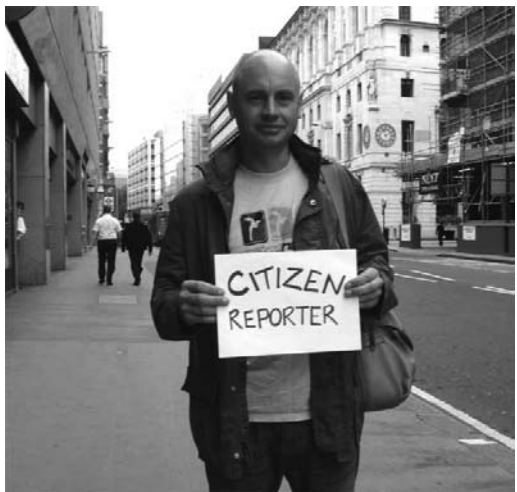 CITIZEN
REPORTER